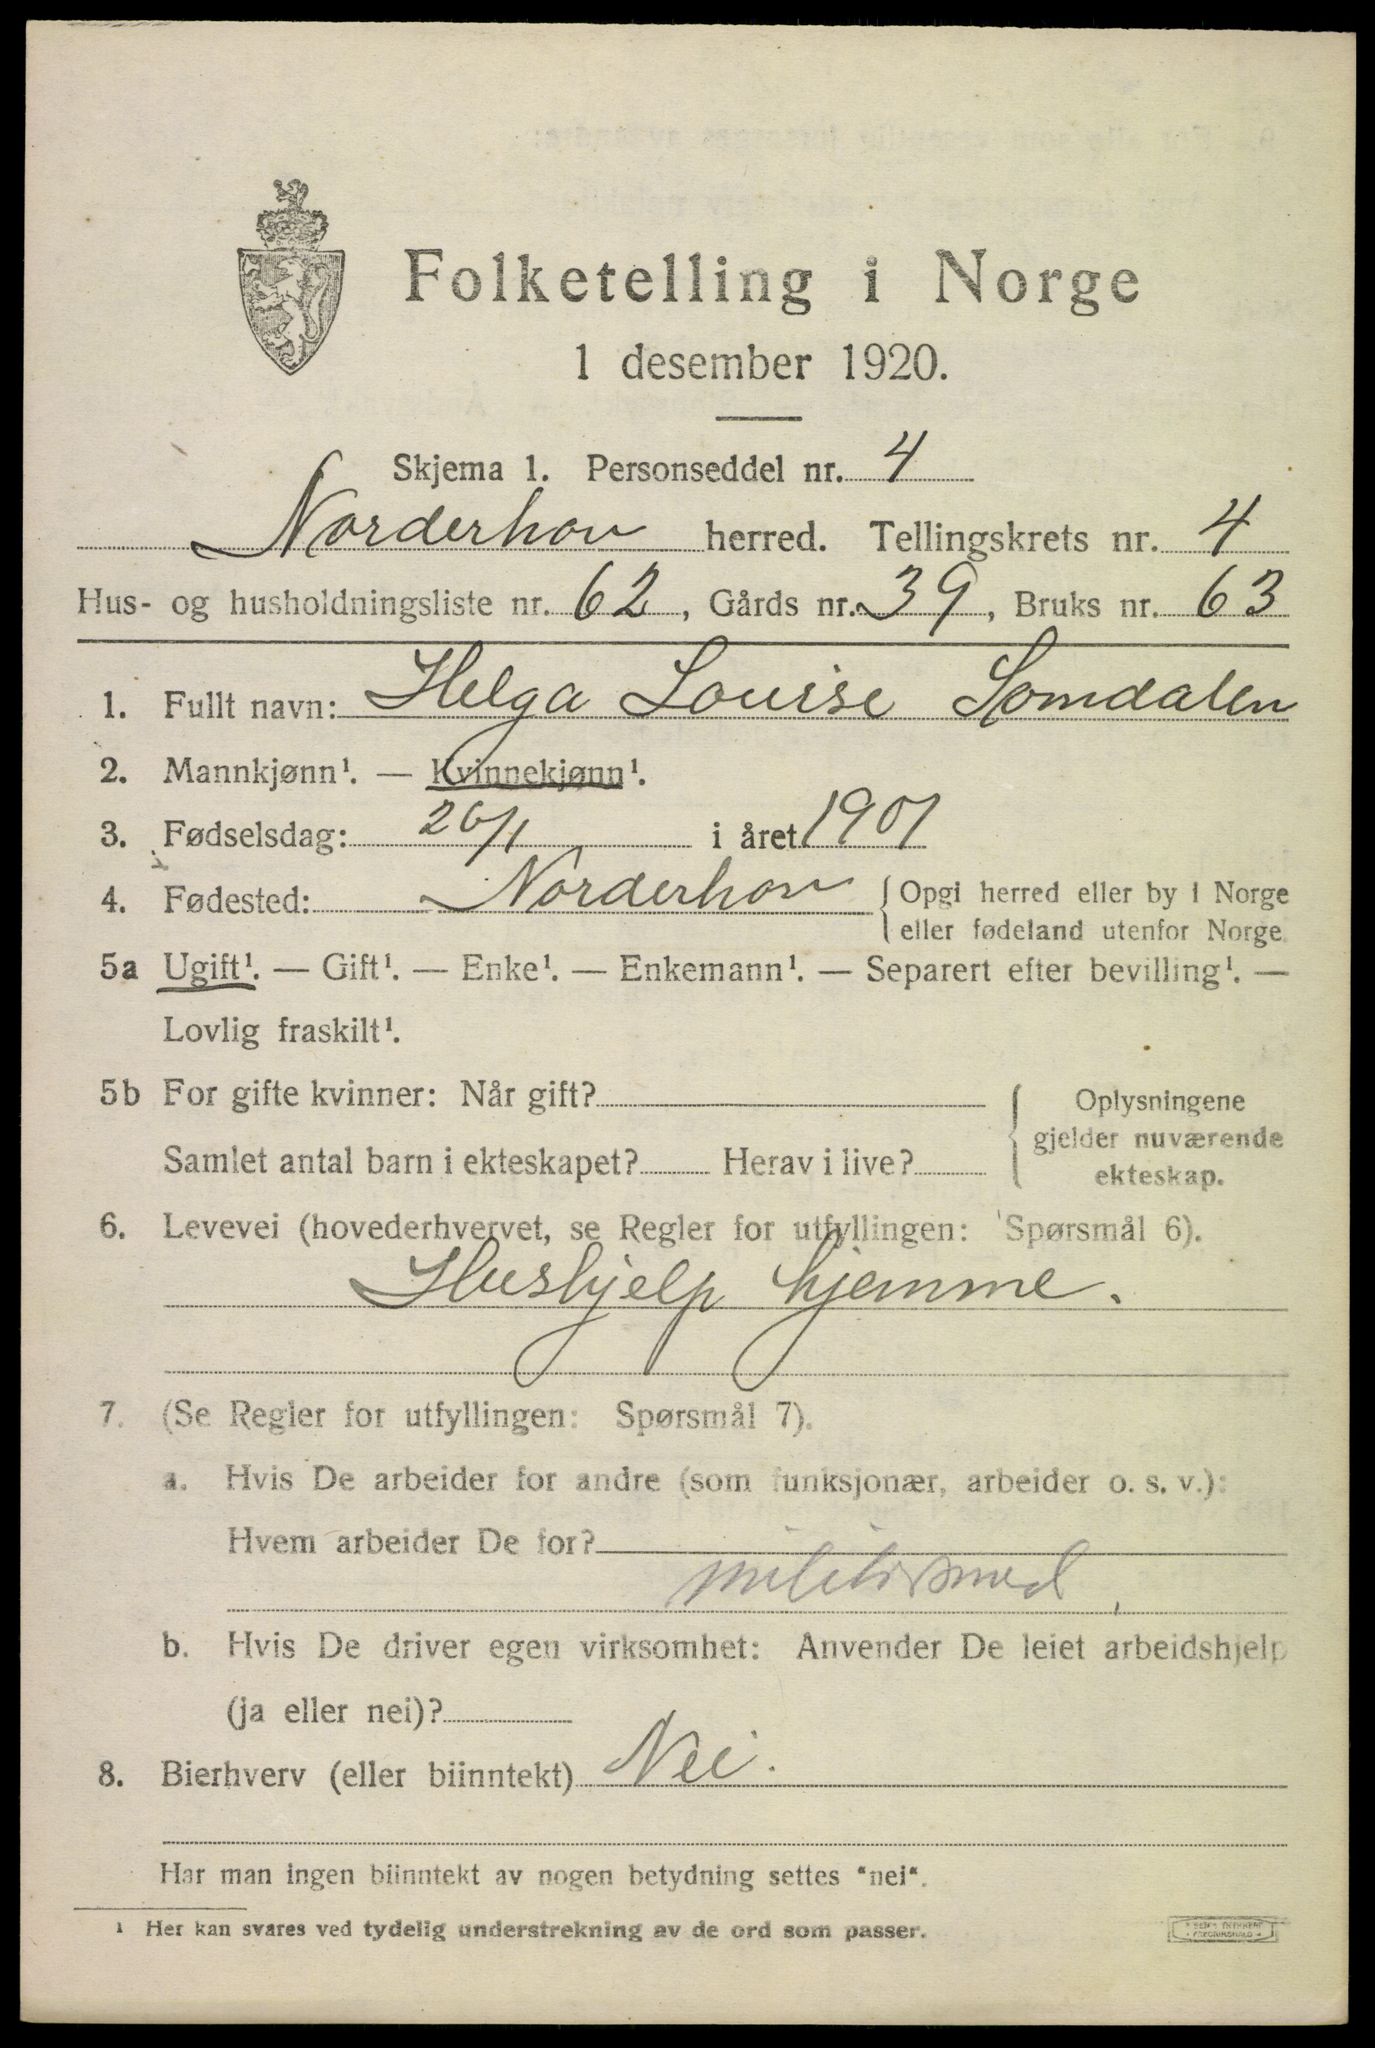 Folketelling i Norge
1 desember 1920.
Skjema 1. Personseddel nr. 4
Norderhov herred. Tellingskrets nr. 4
Hus- og husholdningsliste nr. 62, Gårds nr. 39, Bruks nr. 63
1. Fullt navn: Helga Louise Somdalen
2. Mannkjønn¹. — Kvinnekjønn¹.
3. Fødselsdag: 26/1 i året 1901
4. Fødested: Norderhov {Opgi herred eller by i Norge
eller fødeland utenfor Norge.
5a Ugift¹. — Gift¹. — Enke¹. — Enkemann¹. — Separert efter bevilling¹. —
Lovlig fraskilt¹.
5b For gifte kvinner: Når gift? { Oplysningene
gjelder nuværende
Samlet antal barn i ekteskapet? Herav i live? ekteskap.
6. Levevei (hovederhvervet, se Regler for utfyllingen: Spørsmål 6).
Hushjelp hjemme.
7. (Se Regler for utfyllingen: Spørsmål 7).
a. Hvis De arbeider for andre (som funksjonær, arbeider o. s. v.):
Hvem arbeider De for?
b. Hvis De driver egen virksomhet: Anvender De leiet arbeidshjelp
(ja eller nei)?
8. Bierhverv (eller biinntekt) Nei.
Har man ingen biinntekt av nogen betydning settes "nei".
¹ Her kan svares ved tydelig understrekning av de ord som passer.